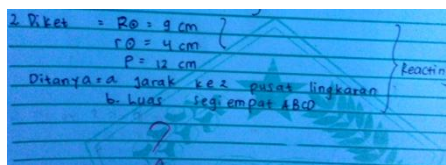 2. Diket = R⊙ = 9 cm
r⊙ = 4 cm
P = 12 cm
Ditanya = a jarak ke 2 pusat lingkaran
b. Luas segi empat ABCD
Reacting
?